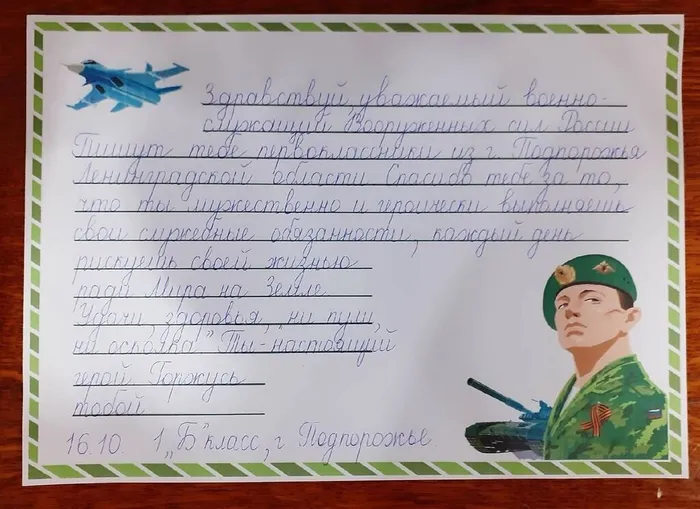 Здравствуй, уважаемый военно-
служащий Вооруженных сил России
Пишут тебе первоклассники из г. Подпорожья
Ленинградской области. Спасибо тебе за то,
что ты мужественно и героически выполняешь
свои служебные обязанности, каждый день
рискуешь своей жизнью
ради Мира на Земле.
Удачи, здоровья, „ни пули,
ни осколка!" Ты-настоящий
герой. Горжусь
тобой
16.10. 1 „Б" класс, г Подпорожье.